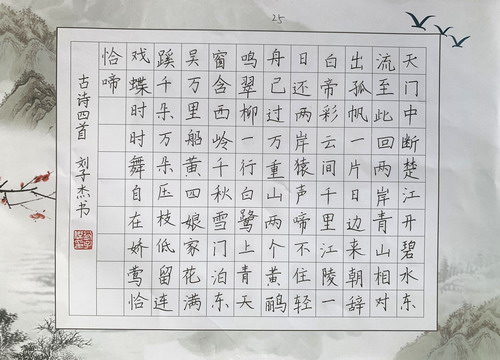 25
天门中断楚江开碧水东
流至此回两岸青山相对
出孤帆一片日边来朝辞
白帝彩云间千里江陵一
日还两岸猿声啼不住轻
舟已过万重山两个黄鹂
鸣翠柳一行白鹭上青天
窗含西岭千秋雪门泊东
吴万里船黄四娘家花满
蹊千朵万朵压枝低留连
戏蝶时时舞自在娇莺恰
恰啼
古诗四首 刘子杰书